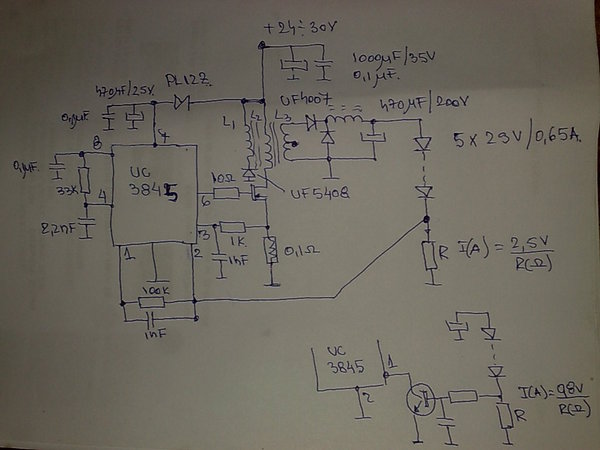 +24÷30V
1000µF/35V
0,1µF.
PL12Z
470µF/25V.
0,1µF
UF4007
470µF/200V
L1
L2
L3
5 x 29V/0,65A.
8
7
0,1µF.
33K
4
UC
3845
10Ω
6
UF5408
2,2nF
3
1K
1nF
0,1Ω
1
2
R
I(A) = 2,5V
R(Ω)
100K
1nF
UC
3845
1
2
R
I(A)=0,8V
R(Ω)